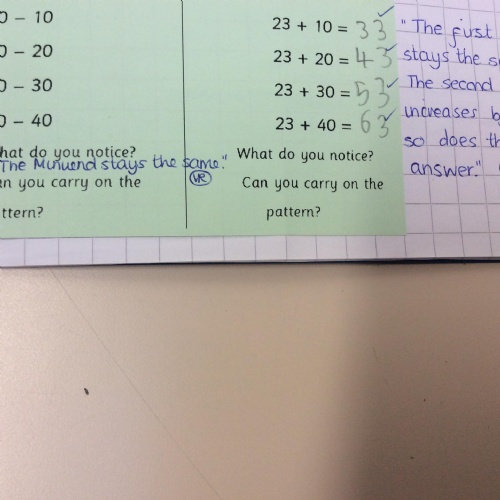 0 - 10
0 - 20
0 - 30
0 - 40
hat do you notice?
"The Minuend stays the same."
VR
n you carry on the
ttern?
23 + 10 = 33
23 + 20 = 43
23 + 30 = 53
23 + 40 = 63
What do you notice?
Can you carry on the
pattern?
"The first
stays the s
The second
increases b
so does th
answer."